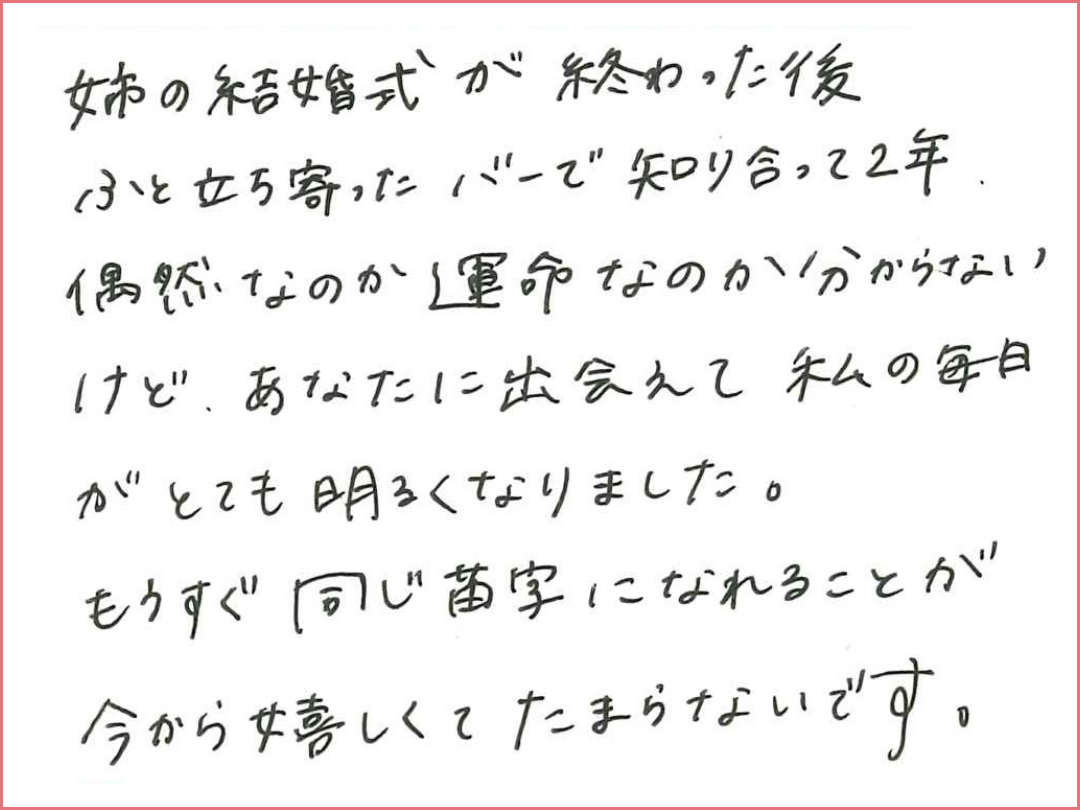 姉の結婚式が終わった後
ふと立ち寄ったバーで知り合って2年.
偶然なのか運命なのか分からない
けど、あなたに出会えて私の毎日
がとても明るくなりました。
もうすぐ同じ苗字になれることが
今から嬉しくてたまらないです。